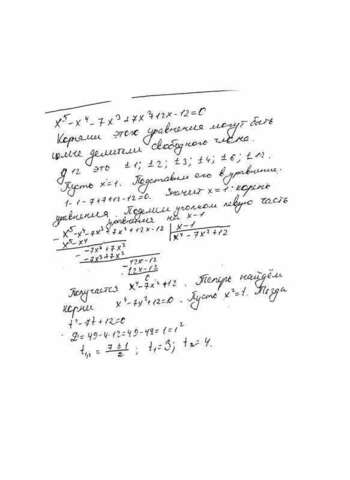 x⁵-x⁴-7x³+7x²+12x-12=0
Корнями этого уравнения могут быть
целые делители свободного члена.
Д 12 это ±1; ±2; ±3; ±4; ±6; ±12.
Пусть x=1. Подставим его в уравнение.
1-1-7+7+12-12=0. Значит x=1 корень
уравнения. Поделим уголком левую часть
уравнения на x-1
x⁵-x⁴-7x³+7x²+12x-12 | x-1
x⁵-x⁴ x⁴-7x²+12
-7x³+7x²
-7x³+7x²
12x-12
12x-12
0
Получается x⁴-7x²+12. Теперь найдём
корни x⁴-7x²+12=0. Пусть x²=t. Тогда
t²-7t+12=0
D=49-4·12=49-48=1=1²
t₁,₂ = 7±1/2 ; t₁=3; t₂=4.